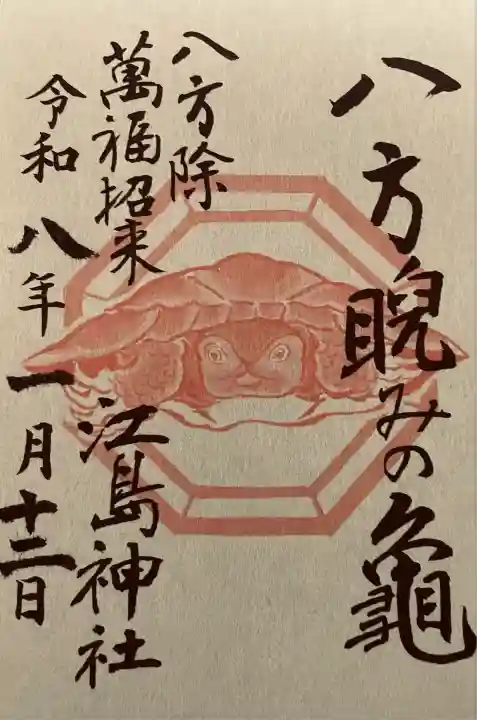 八方睨みの龜
八方除
萬福招来
江島神社
令和八年一月十二日